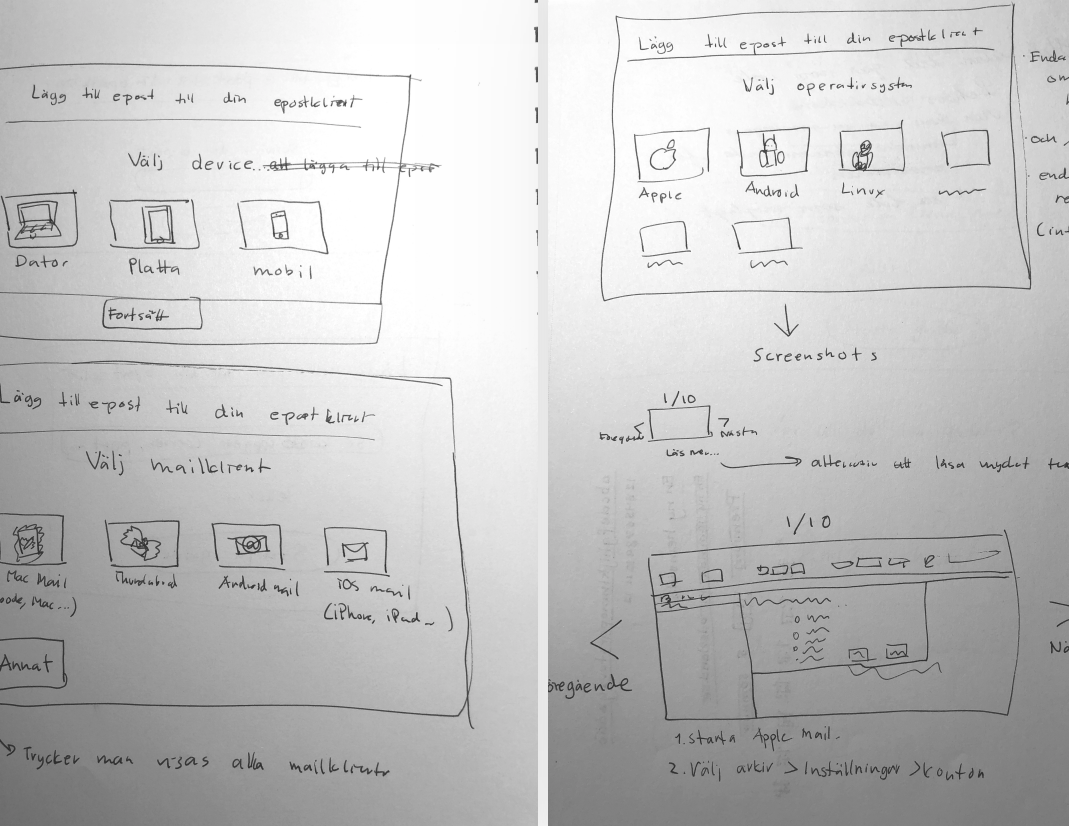 Lägg till epost till din epostklient
Välj device... att lägga till epost
Dator
Platta
mobil
Fortsätt
Lägg till epost till din epostklient
Välj mailklient
Mac Mail
Thunderbird
Android mail
iOS mail
(iPhone, iPad
Annat
Trycker man visas alla mailklienter
Lägg till epost till din epostklient
Välj operativsystem
Apple
Android
Linux
Enda
om
och
end
re
(int
Screenshots
1/10
Föregående
Nästa
Läs mer...
alternativ att läsa mycket
1/10
öregående
Nä
1. Starta Apple Mail.
2. Välj arkiv > Inställningar > konton